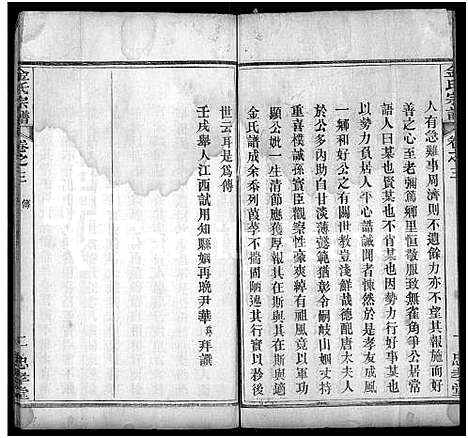 金氏宗譜
卷之三
一
忠孝堂
人有急難事周濟則不遺餘力亦不望其報施而好
善之心至老彌篤鄉里恒敬服致無雀角爭公居常
語人曰某也賢以行好事某也不肖某也因勢力行好事某也
以勢力負居人平心語誠聞者悚然於是孝友成風
一鄉和好公之有關世教豈淺鮮哉德配唐太夫人
宗公多內助自甘淡薄懿範猶彰令嗣岐山斌式克
重喜樸臣誠孫賓臣觀察性豪爽綽有祖風竟以軍功
顯公妣一生節儉應獲厚報其在斯與其在斯與適
金氏譜成余忝列葭莩不揣固陋述其行實以於後
世云耳是為傳
壬戌舉人江西試用知縣姻再晚尹華拜譔
金氏宗譜
卷之三
傳
二
忠孝堂